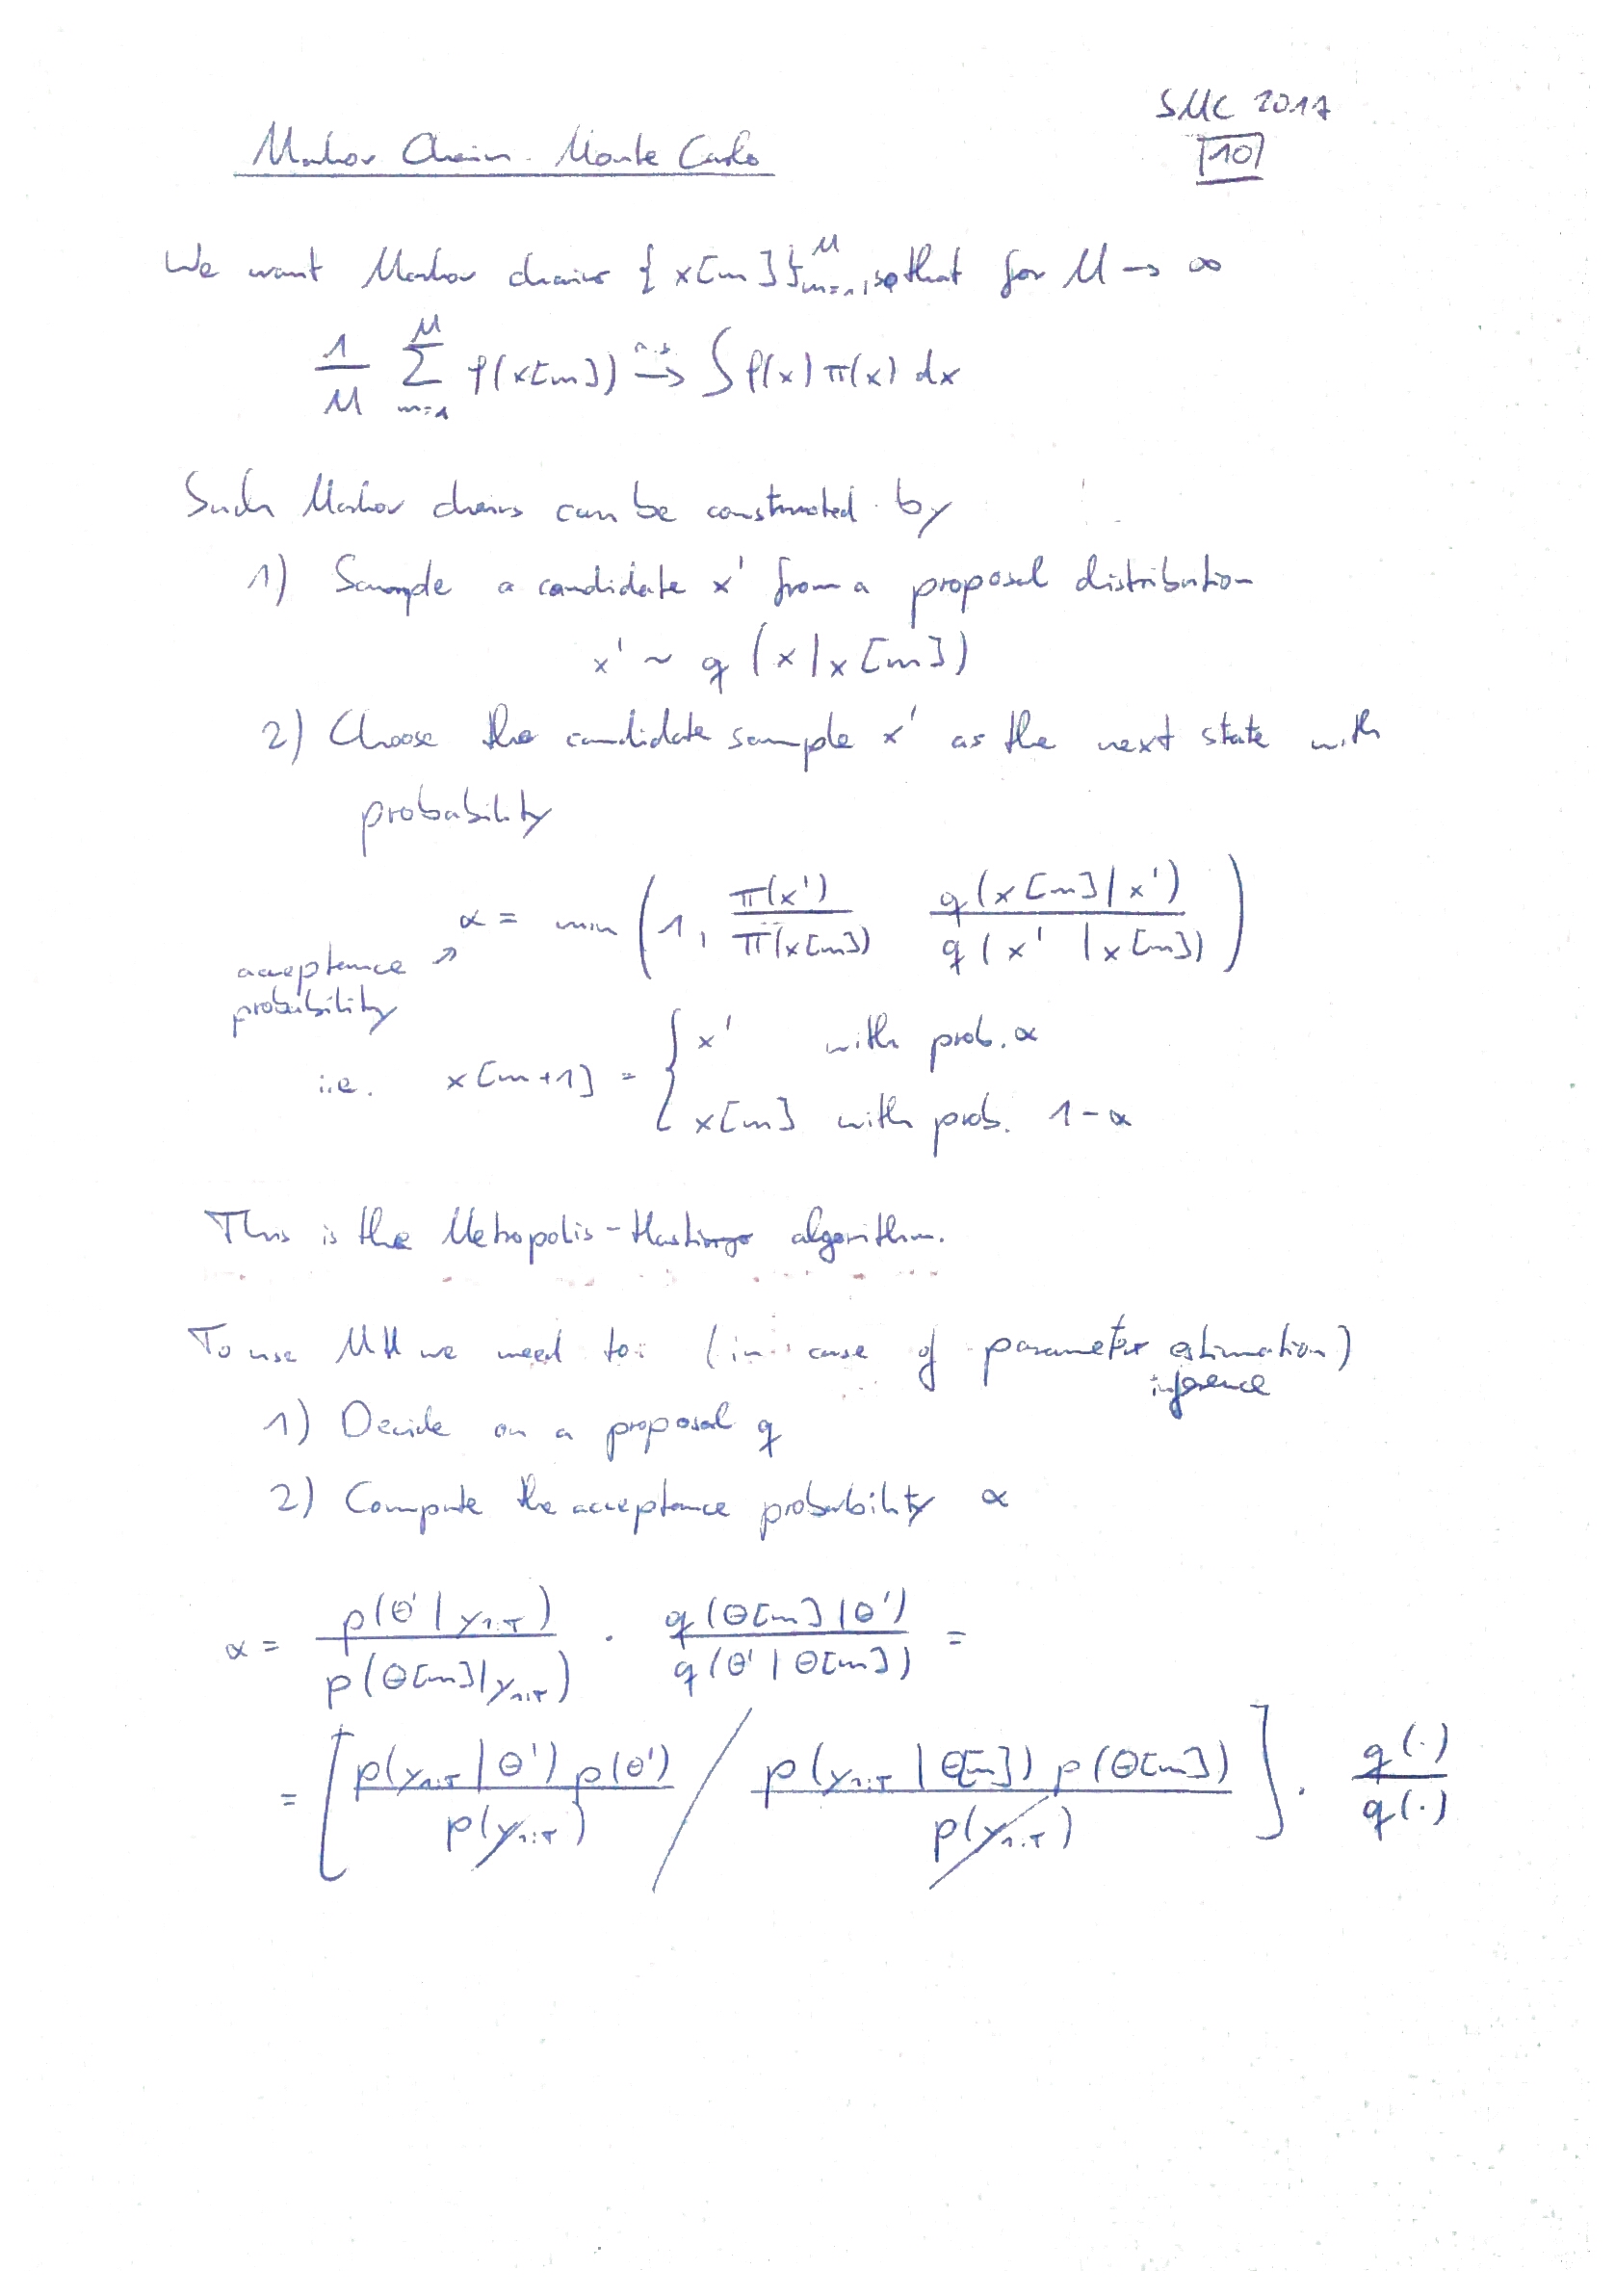 SMC 2017
Markov Chain Monte Carlo
[10]
We want Markov chains { x[m] }_{m=1}^{M}, so that for M → ∞
1/M Σ_{m=1}^{M} φ(x[m]) →^{a.s.} ∫ φ(x) π(x) dx
Such Markov chains can be constructed by
1) Sample a candidate x' from a proposal distribution
x' ~ q (x | x[m])
2) Choose the candidate sample x' as the next state with
probability
α = min ( 1, π(x') / π(x[m]) q(x[m] | x') / q(x' | x[m]) )
acceptance ↗
probability
i.e. x[m+1] = { x' with prob. α
x[m] with prob. 1-α
This is the Metropolis-Hastings algorithm.
To use MH we need to: (in case of parameter estimation)
inference
1) Decide on a proposal q
2) Compute the acceptance probability α
α = p(θ' | y_{1:T}) / p(θ[m] | y_{1:T}) · q(θ[m] | θ') / q(θ' | θ[m]) =
= [ p(y_{1:T} | θ') p(θ') / p(y_{1:T}) / p(y_{1:T} | θ[m]) p(θ[m]) / p(y_{1:T}) ] · q(·) / q(·)